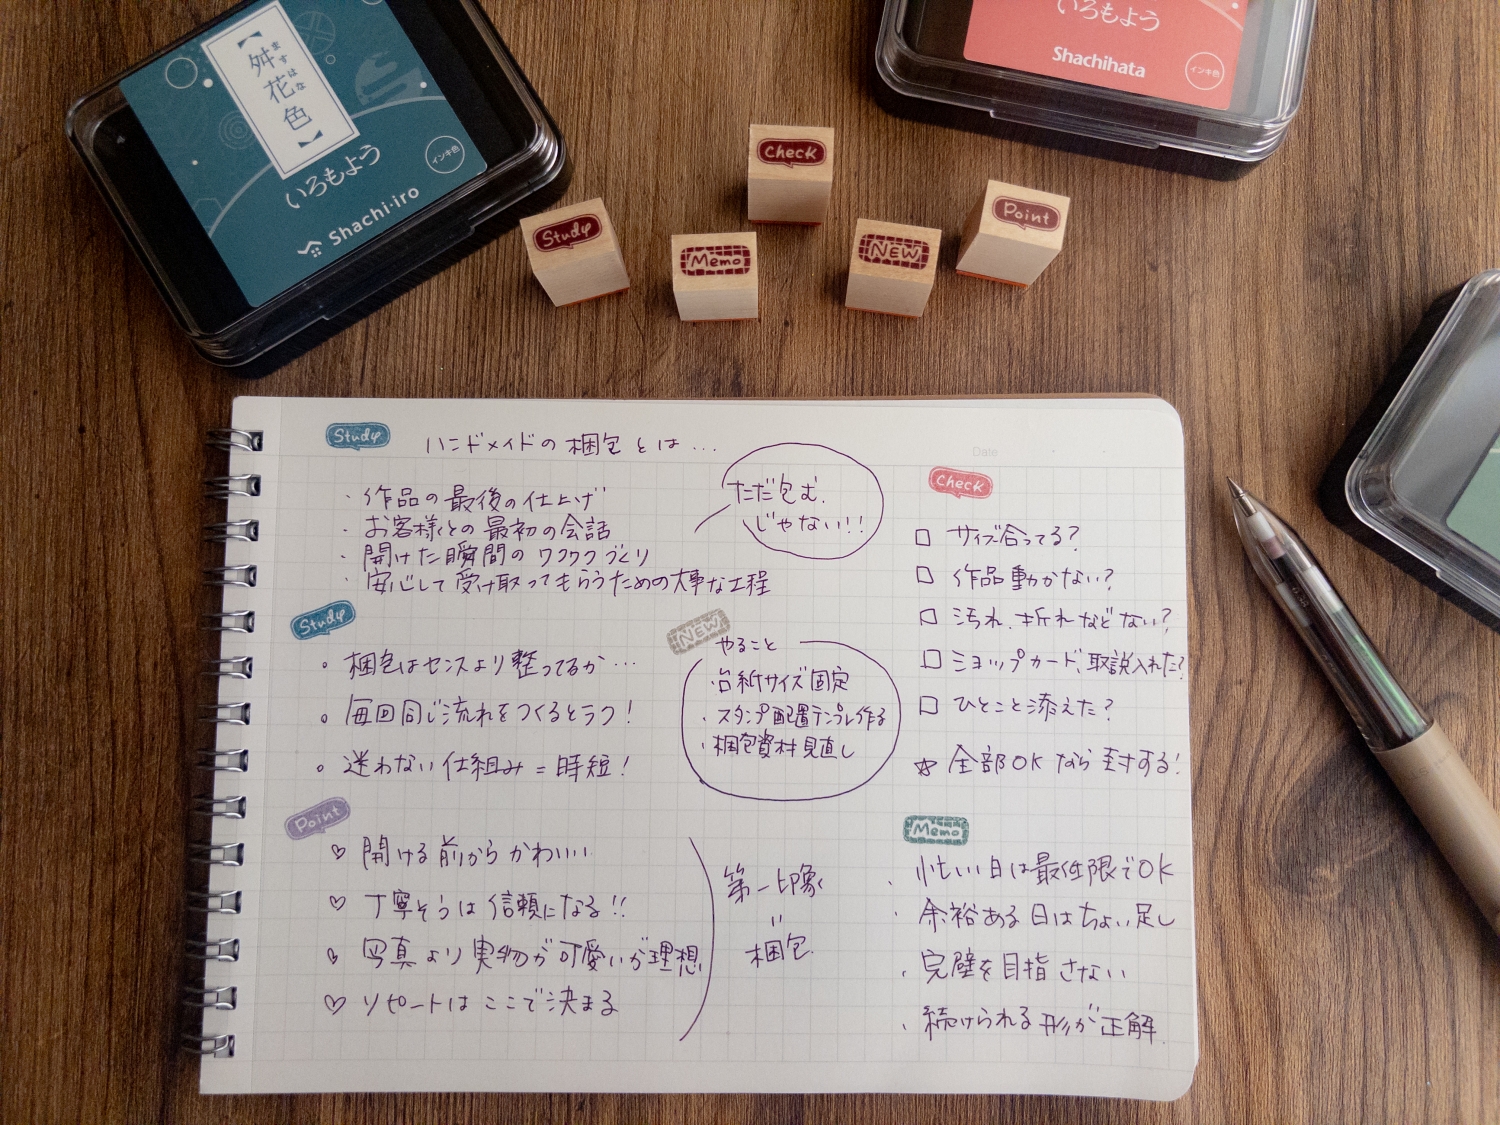 【舛花色】
ますはな
いろもよう
インキ色
Shachi-iro
いろもよう
Shachihata
インキ色
Check
Study
Memo
NEW
Point
Study
ハンドメイドの梱包とは…
・作品の最後の仕上げ
・お客様との最初の会話
・開けた瞬間のワクワクづくり
・安心して受け取ってもらうための大事な工程
ただ包む、
じゃない!!
Study
。梱包はセンスより整ってるか…
。毎回同じ流れをつくるとラク!
。迷わない仕組み=時短!
NEW
やること
・台紙サイズ固定
・スタンプ配置テンプレ作る
・梱包資材見直し
Point
♡ 開ける前からかわいい
♡ 丁寧そうは信頼になる!!
♡ 写真より実物が可愛いが理想
♡ リピートはここで決まる
第一印象
〃
梱包
Date
Check
□ サイズ合ってる?
□ 作品動かない?
□ 汚れ、折れなどない?
□ ショップカード、取説入れた?
□ ひとこと添えた?
☆ 全部OKなら封する!
Memo
・忙しい日は最低限でOK
・余裕ある日はちょい足し
・完璧を目指さない
・続けられる形が正解